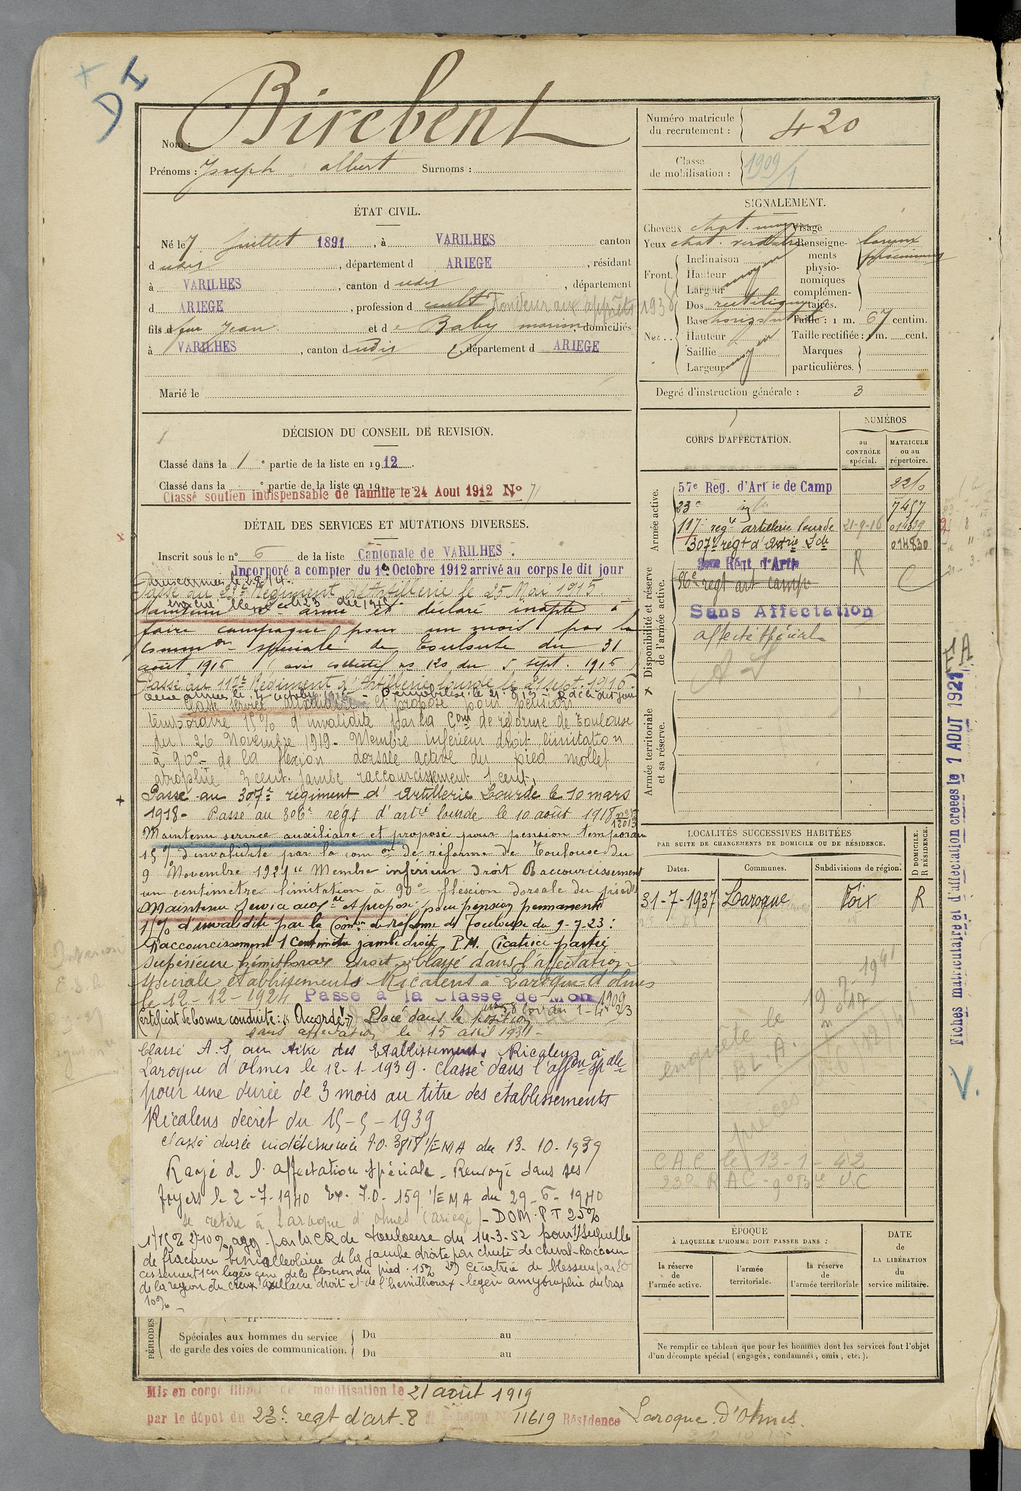 DI
Nom : Birebent
Prénoms : Joseph Albert Surnoms :
Numéro matricule
du recrutement : 420
Classe
de mobilisation : 1909/1
ÉTAT CIVIL.
Né le 7 juillet 1891, à VARILHES canton
d udis, département d ARIEGE, résidant
à VARILHES, canton d udis, département
d ARIEGE, profession d cult Tondeur aux apprêts 1938
fils de feu Jean et de Baby domiciliés
à VARILHES, canton d udis, département d ARIEGE
Marié le
SIGNALEMENT.
Cheveux chat. moyen Visage
Yeux chat. verdâtre Renseigne-
ments
physio-
nomiques
complémen-
taires.
Front. Inclinaison
Hauteur moyen
Largeur
Nez : Dos rectiligne
Base horizontale
Hauteur moyen
Saillie
Largeur
Taille : 1 m. 67 centim.
Taille rectifiée : 1 m. cent.
Marques
particulières.
Degré d'instruction générale : 3
DÉCISION DU CONSEIL DE REVISION.
Classé dans la 1e partie de la liste en 1912.
Classé dans la e partie de la liste en 19
Classé soutien indispensable de famille le 24 Aout 1912 No 71
DÉTAIL DES SERVICES ET MUTATIONS DIVERSES.
Inscrit sous le n° 6 de la liste Cantonale de VARILHES.
Incorporé a compter du 1er Octobre 1912 arrivé au corps le dit jour
Passé au 23e Régiment d'Artillerie le 25 Mai 1915
Maintenu service armé et déclaré inapte à
faire campagne pour un mois par la
Common spéciale de Toulouse du 31
août 1916 avis collectif no 126 du 5 sept. 1916
Passé au 117e Régiment d'Artillerie lourde le 21 sept 1916
Classé service auxiliaire et proposé pour pension
temporaire 15% d'invalidité par la Com de réforme de Toulouse
du 26 Novembre 1919. Membre inférieur droit limitation
à 90° de la flexion dorsale active du pied mollet
atrophié 3 cent. jambe raccourcissement 1 cent.
Passé au 307e régiment d'Artillerie Lourde le 10 mars
1918. Passé au 306e régt d'artie lourde le 10 août 1918
Maintenu service auxiliaire et proposé pour pension temporaire
15% d'invalidité par la com on de réforme de Toulouse du
9 Novembre 1921 "Membre inférieur droit Raccourcissement
un centimètre limitation à 90° flexion dorsale du pied"
Maintenu service auxre et proposé pour pension permanente
15% d'invalidité par la Comon de réforme de Toulouse du 9-7-23 :
Raccourcissement 1 centimètre jambe droite P.M. Cicatrice partie
supérieure hémithorax droit. Classé dans l'affectation
spéciale établissements Ricalens à Laroque d'olmes
le 12-12-1924 Passé à la Classe de Mob 1909
Certificat de bonne conduite : "Accordé" Loi du 1-4-23
Placé dans la position
sans affectation le 15 avril 1931.
Classé A.S. au titre des Etablissements Ricalens à
Laroque d'olmes le 12-1-1939. Classé dans l'affon spale
pour une durée de 3 mois au titre des établissements
Ricalens décret du 15-5-1939
Classé durée indéterminée T.O. 3818 1/EMA du 13-10-1939
Rayé de l'affectation spéciale - Renvoyé dans ses
foyers le 2-7-1940 Ex. T.O. 159 1/EMA du 29-6-1940
se retire à Laroque d'olmes (Ariège) - DOM. PT 25%
1) 15% 2) 10% agg. par la CR de Toulouse du 14-3-52 pour 1) séquelle
de fracture bimalléolaire de la jambe droite par chute de cheval - Raccour-
cissement 1 cm légère gêne de la flexion du pied - 15% 2) Cicatrice de blessure par EO
de la région du creux axillaire droit et de l'hémithorax - légère amyotrophie du bras
10% -
PÉRIODES
Spéciales aux hommes du service
de garde des voies de communication.
Du au
Du au
Mis en congé illimité de démobilisation le 21 août 1919
par le dépôt du 23e regt d'art. 8 11619 Résidence Laroque d'Olmes.
CORPS D'AFFECTATION.
NUMÉROS
au
CONTRÔLE
spécial.
MATRICULE
ou au
répertoire.
Armée active.
57e Rég. d'Artie de Camp 2210
23e id 7457
117e regt artillerie lourde 21-9-16
307e regt d'Artrie Lde 014830
Disponibilité et réserve
de l'armée active.
86e regt art camp R
Sans Affectation
affecté spécial
A S
Armée territoriale
et sa réserve.
LOCALITÉS SUCCESSIVES HABITÉES
PAR SUITE DE CHANGEMENTS DE DOMICILE OU DE RÉSIDENCE.
D DOMICILE.
R RÉSIDENCE.
Dates. Communes. Subdivisions de région.
31-7-1937 Laroque Foix R
enquête le 19
BL.A.
C.A.C. le 13-1-42
ÉPOQUE
À LAQUELLE L'HOMME DOIT PASSER DANS :
la réserve
de
l'armée active.
l'armée
territoriale.
la réserve
de
l'armée territoriale
DATE
de
LA LIBÉRATION
du
service militaire.
Ne remplir ce tableau que pour les hommes dont les services font l'objet
d'un décompte spécial (engagés, condamnés, omis, etc.).
Fiches matriculaire et d'affectation créées le 1 AOUT 1921
F A
V.